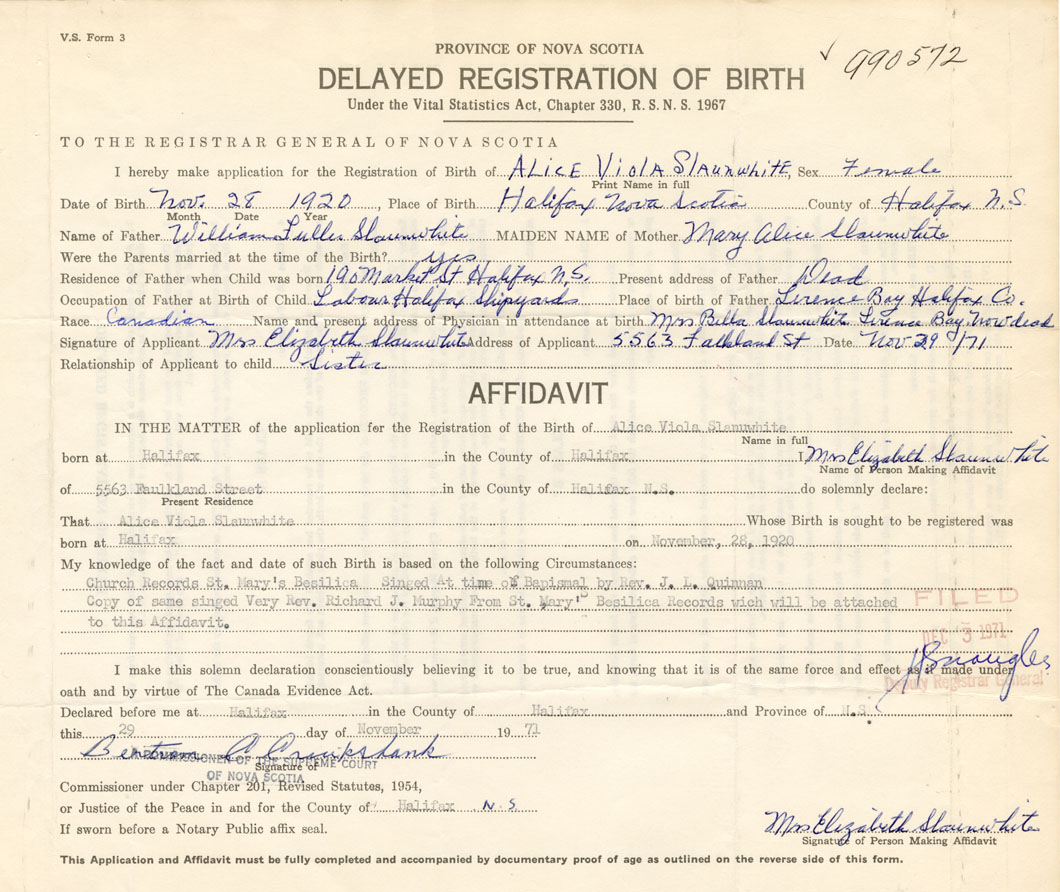 V.S. Form 3
PROVINCE OF NOVA SCOTIA
✓ 990572
DELAYED REGISTRATION OF BIRTH
Under the Vital Statistics Act, Chapter 330, R. S. N. S. 1967
TO THE REGISTRAR GENERAL OF NOVA SCOTIA
I hereby make application for the Registration of Birth of ALICE VIOLA SLAUNWHITE, Sex Female
Print Name in full
Date of Birth Nov. 28 1920, Place of Birth Halifax Nova Scotia County of Halifax N.S.
Month Date Year
Name of Father William Fuller Slaunwhite MAIDEN NAME of Mother Mary Alice Slaunwhite
Were the Parents married at the time of the Birth? yes
Residence of Father when Child was born 190 Market St Halifax N.S. Present address of Father Dead
Occupation of Father at Birth of Child Labour Halifax Shipyards Place of birth of Father Terence Bay Halifax Co.
Race Canadian Name and present address of Physician in attendance at birth Mrs Bella Slaunwhite Terence Bay Now dead
Signature of Applicant Mrs Elizabeth Slaunwhite Address of Applicant 5563 Falkland St Date Nov 29/71
Relationship of Applicant to child Sister
AFFIDAVIT
IN THE MATTER of the application for the Registration of the Birth of Alice Viola Slaunwhite
Name in full
born at Halifax in the County of Halifax I Mrs Elizabeth Slaunwhite
Name of Person Making Affidavit
of 5563 Faulkland Street in the County of Halifax N.S. do solemnly declare:
Present Residence
That Alice Viola Slaunwhite Whose Birth is sought to be registered was
born at Halifax on November, 28, 1920
My knowledge of the fact and date of such Birth is based on the following Circumstances:
Church Records St. Mary's Besilica Singed At time of Bapismal by Rev. J. L. Quinnan
Copy of same singed Very Rev. Richard J. Murphy From St. Mary's Besilica Records wich will be attached
to this Affidavit.
FILED
DEC 3 1971
I make this solemn declaration conscientiously believing it to be true, and knowing that it is of the same force and effect as if made under
oath and by virtue of The Canada Evidence Act.
Deputy Registrar General
Declared before me at Halifax in the County of Halifax and Province of N.S.
this 29 day of November 1971
A COMMISSIONER OF THE SUPREME COURT
Signature of
OF NOVA SCOTIA
Commissioner under Chapter 201, Revised Statutes, 1954,
or Justice of the Peace in and for the County of Halifax N.S
If sworn before a Notary Public affix seal.
Mrs Elizabeth Slaunwhite
Signature of Person Making Affidavit
This Application and Affidavit must be fully completed and accompanied by documentary proof of age as outlined on the reverse side of this form.